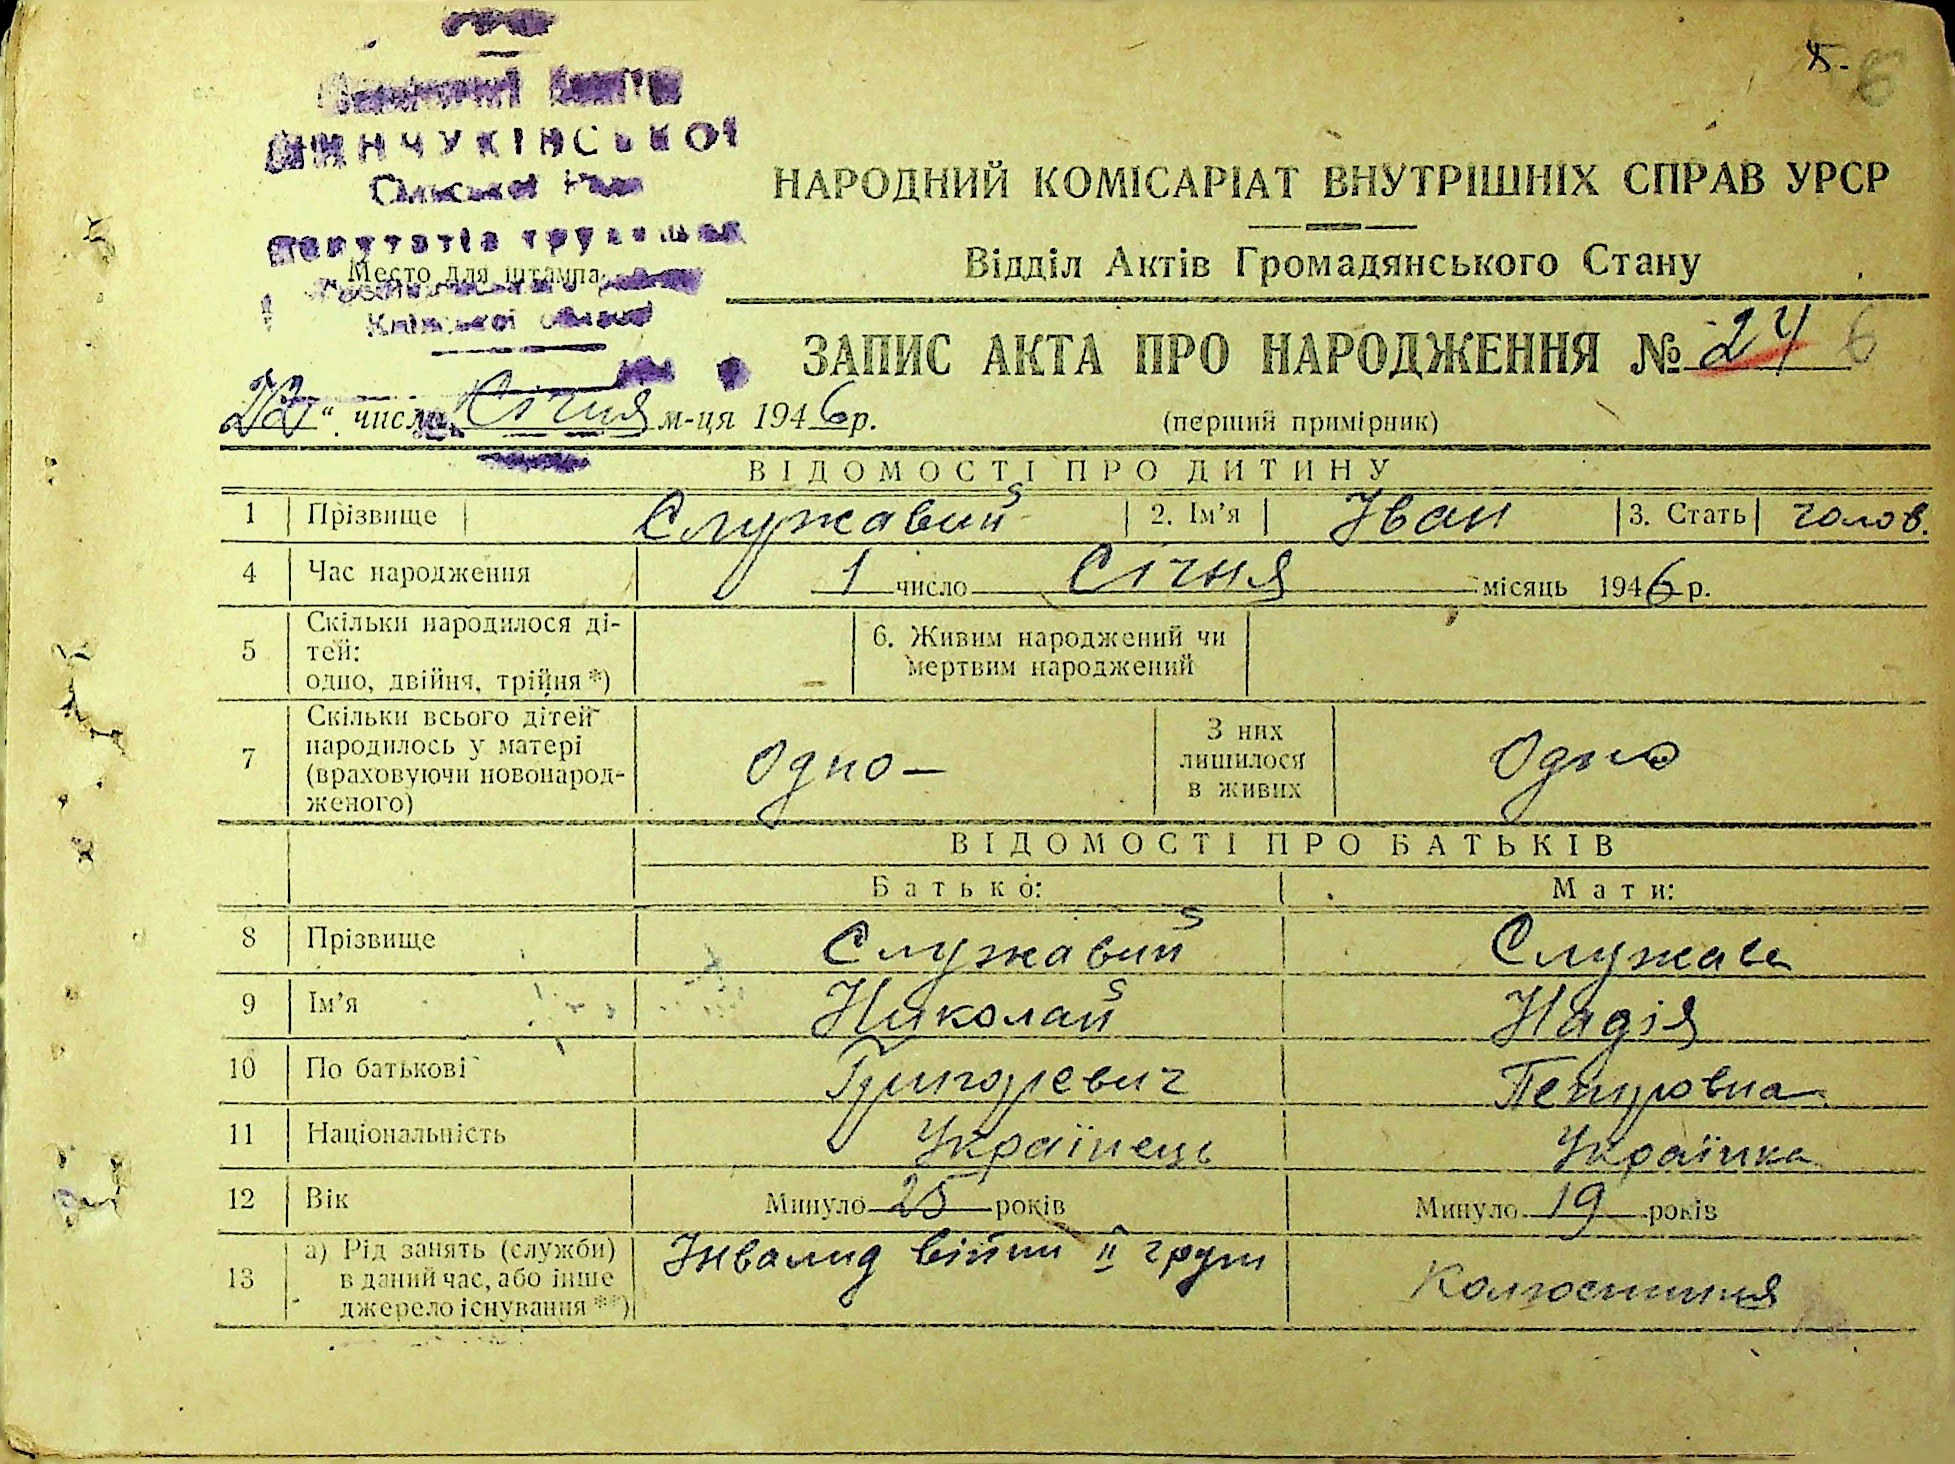 ИНЧУКІНСЬКОЇ
Місто для штампа
Київської області
5- 6
НАРОДНИЙ КОМІСАРІАТ ВНУТРІШНІХ СПРАВ УРСР
Відділ Актів Громадянського Стану
ЗАПИС АКТА ПРО НАРОДЖЕННЯ № 24 6
22 “ число Січня м-ця 1946 р.
(перший примірник)
ВІДОМОСТІ ПРО ДИТИНУ
1 Прізвище Служавий 2. Ім’я Іван 3. Стать голов.
4 Час народження 1 число Січня місяць 1946 р.
5 Скільки народилося ді-
тей:
одно, двійня, трійня *)
6. Живим народжений чи
мертвим народжений
7 Скільки всього дітей
народилось у матері
(враховуючи новонарод-
женого)
Одно –
З них
лишилося
в живих
Одно
ВІДОМОСТІ ПРО БАТЬКІВ
Батько: Мати:
8 Прізвище Служавий Служава
9 Ім’я Николай Надія
10 По батькові Григорєвич Петровна
11 Національність Українець Українка
12 Вік Минуло 25 років Минуло 19 років
13 а) Рід занять (служби)
в даний час, або інше
джерело існування **)
Інвалид війни II груп
Колгоспниця